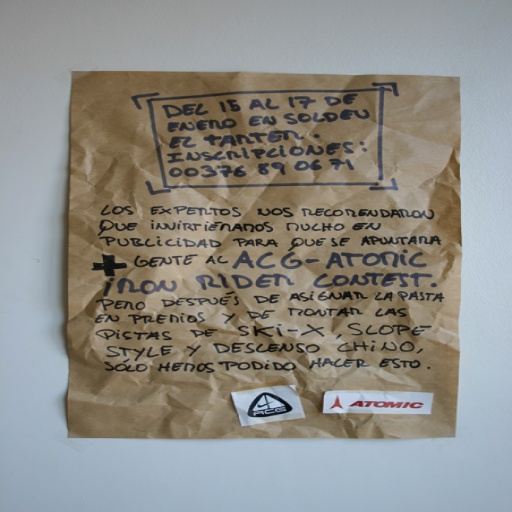 DEL 15 AL 17 DE
ENERO EN SOLDEU
EL TARTER.
INSCRIPCIONES:
00376 89 06 71
LOS EXPERTOS NOS RECOMENDARON
QUE INVIRTIÉRAMOS MUCHO EN
PUBLICIDAD PARA QUE SE APUNTARA
+ GENTE AL ACG-ATOMIC
IRON RIDER CONTEST.
PERO DESPUÉS DE ASIGNAR LA PASTA
EN PREMIOS Y DE MONTAR LAS
PISTAS DE SKI-X, SLOPE
STYLE Y DESCENSO CHINO,
SÓLO HEMOS PODIDO HACER ESTO.
ACG
ATOMIC